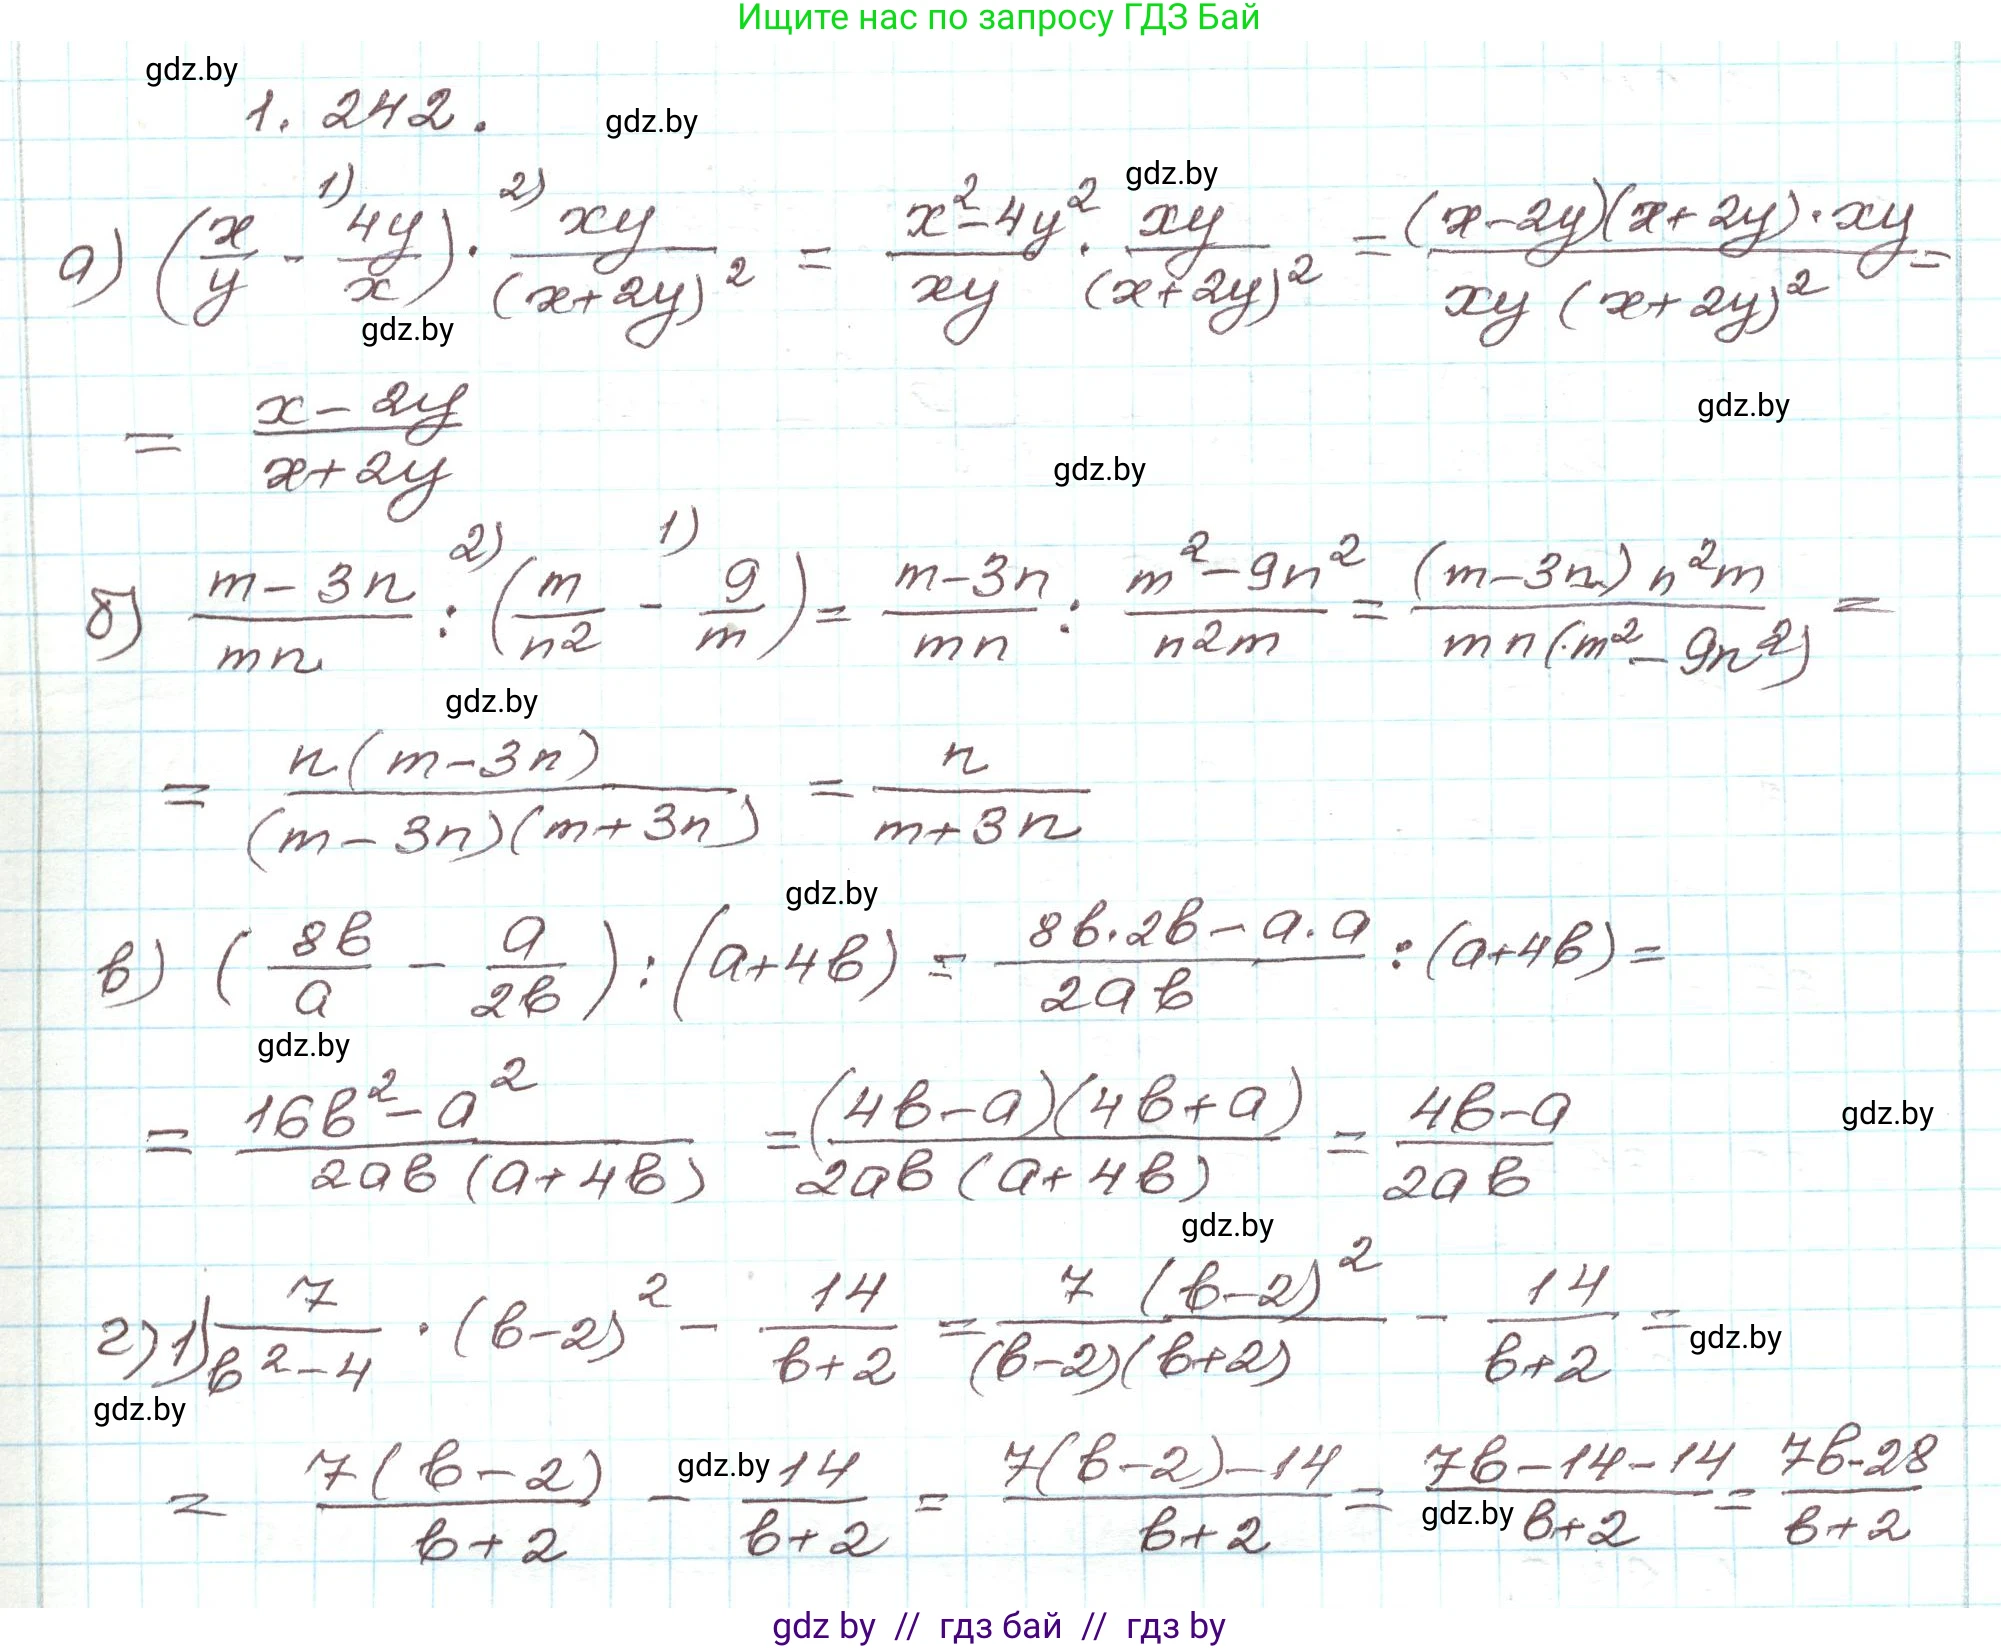 Ищите нас по запросу ГДЗ Бай
gdz.by
1.242. gdz.by
gdz.by
а) (x/y -¹⁾ 4y/x) ·²⁾ xy/(x+2y)² = x²-4y²/xy · xy/(x+2y)² = (x-2y)(x+2y)·xy/xy(x+2y)² =
gdz.by
= x-2y/x+2y
gdz.by
gdz.by
б) m-3n/mn :²⁾ (m/n² -¹⁾ 9/m) = m-3n/mn : m²-9n²/n²m = (m-3n)n²m/mn(m²-9n²) =
gdz.by
= n(m-3n)/(m-3n)(m+3n) = n/m+3n
gdz.by
в) (8b/a - a/2b) : (a+4b) = 8b·2b-a·a/2ab : (a+4b) =
gdz.by
= 16b²-a²/2ab(a+4b) = (4b-a)(4b+a)/2ab(a+4b) = 4b-a/2ab
gdz.by
gdz.by
г) 1) 7/b²-4 · (b-2)² - 14/b+2 = 7(b-2)²/(b-2)(b+2) - 14/b+2 =
gdz.by
gdz.by
= 7(b-2)/b+2 - 14/b+2 = 7(b-2)-14/b+2 = 7b-14-14/b+2 = 7b-28/b+2
gdz.by
gdz.by
gdz by // гдз бай // гдз by